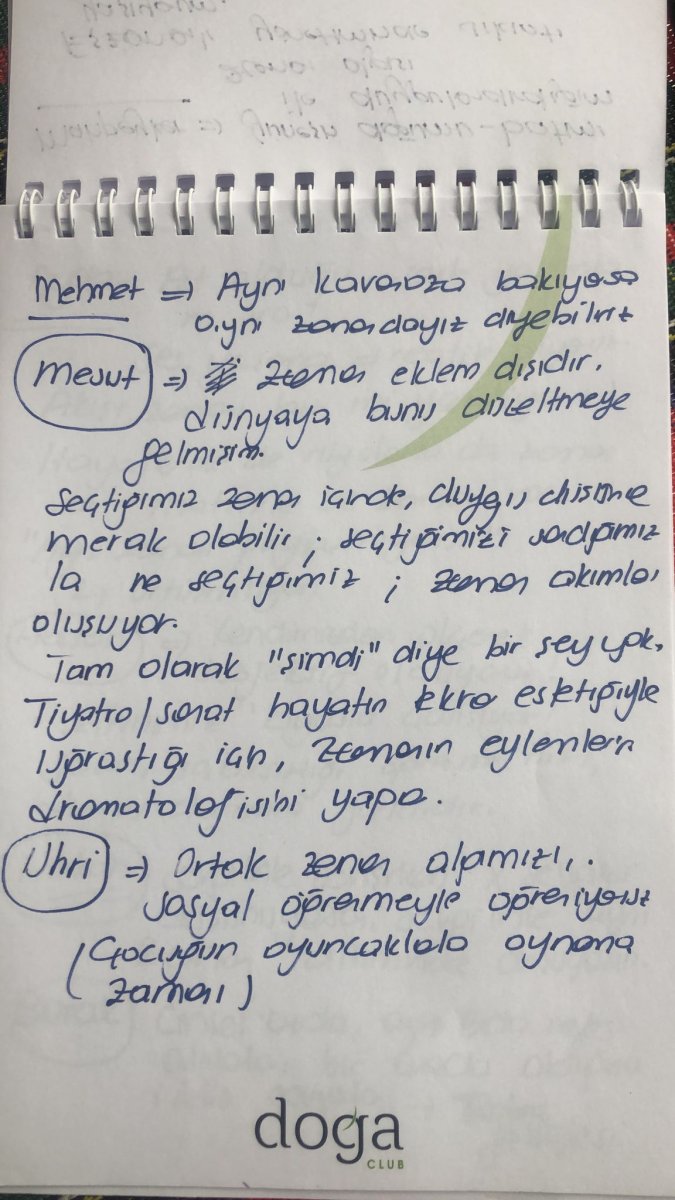 Mehmet => Aynı kavanoza bakıyorsa
aynı zamandayız diyebiliriz
Mesut => Zaman eklem dışıdır.
dünyaya bunu düzeltmeye
gelmişim.
Seçtiğimiz zaman içinde, duygu düşünce
merak olabilir; seçtiğimizi sandığımız
la ne seçtiğimiz; zaman akımları
oluşuyor.
Tam olarak "şimdi" diye bir şey yok.
Tiyatro/sanat hayatın estetiğiyle
uğraştığı için, zamanın eylemlerin
dramatolojisini yapa.
Uhri => Ortak zaman algımızı,.
sosyal öğrenmeyle öğreniyoruz
(Çocuğun oyuncaklala oynama
zamanı)
doğa
CLUB